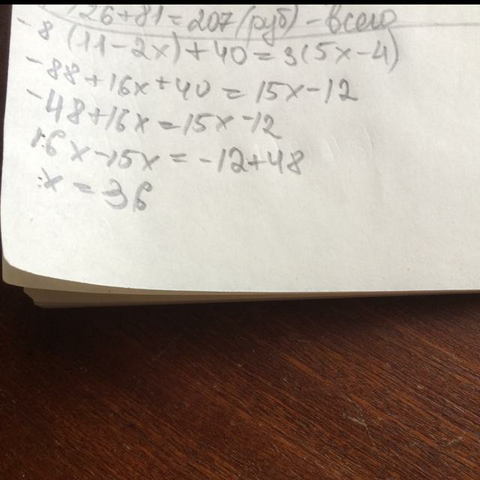 126+81=207 (руб) - всего
-8 (11-2x)+40=3(5x-4)
-88+16x+40=15x-12
-48+16x=15x-12
16x-15x=-12+48
x=36